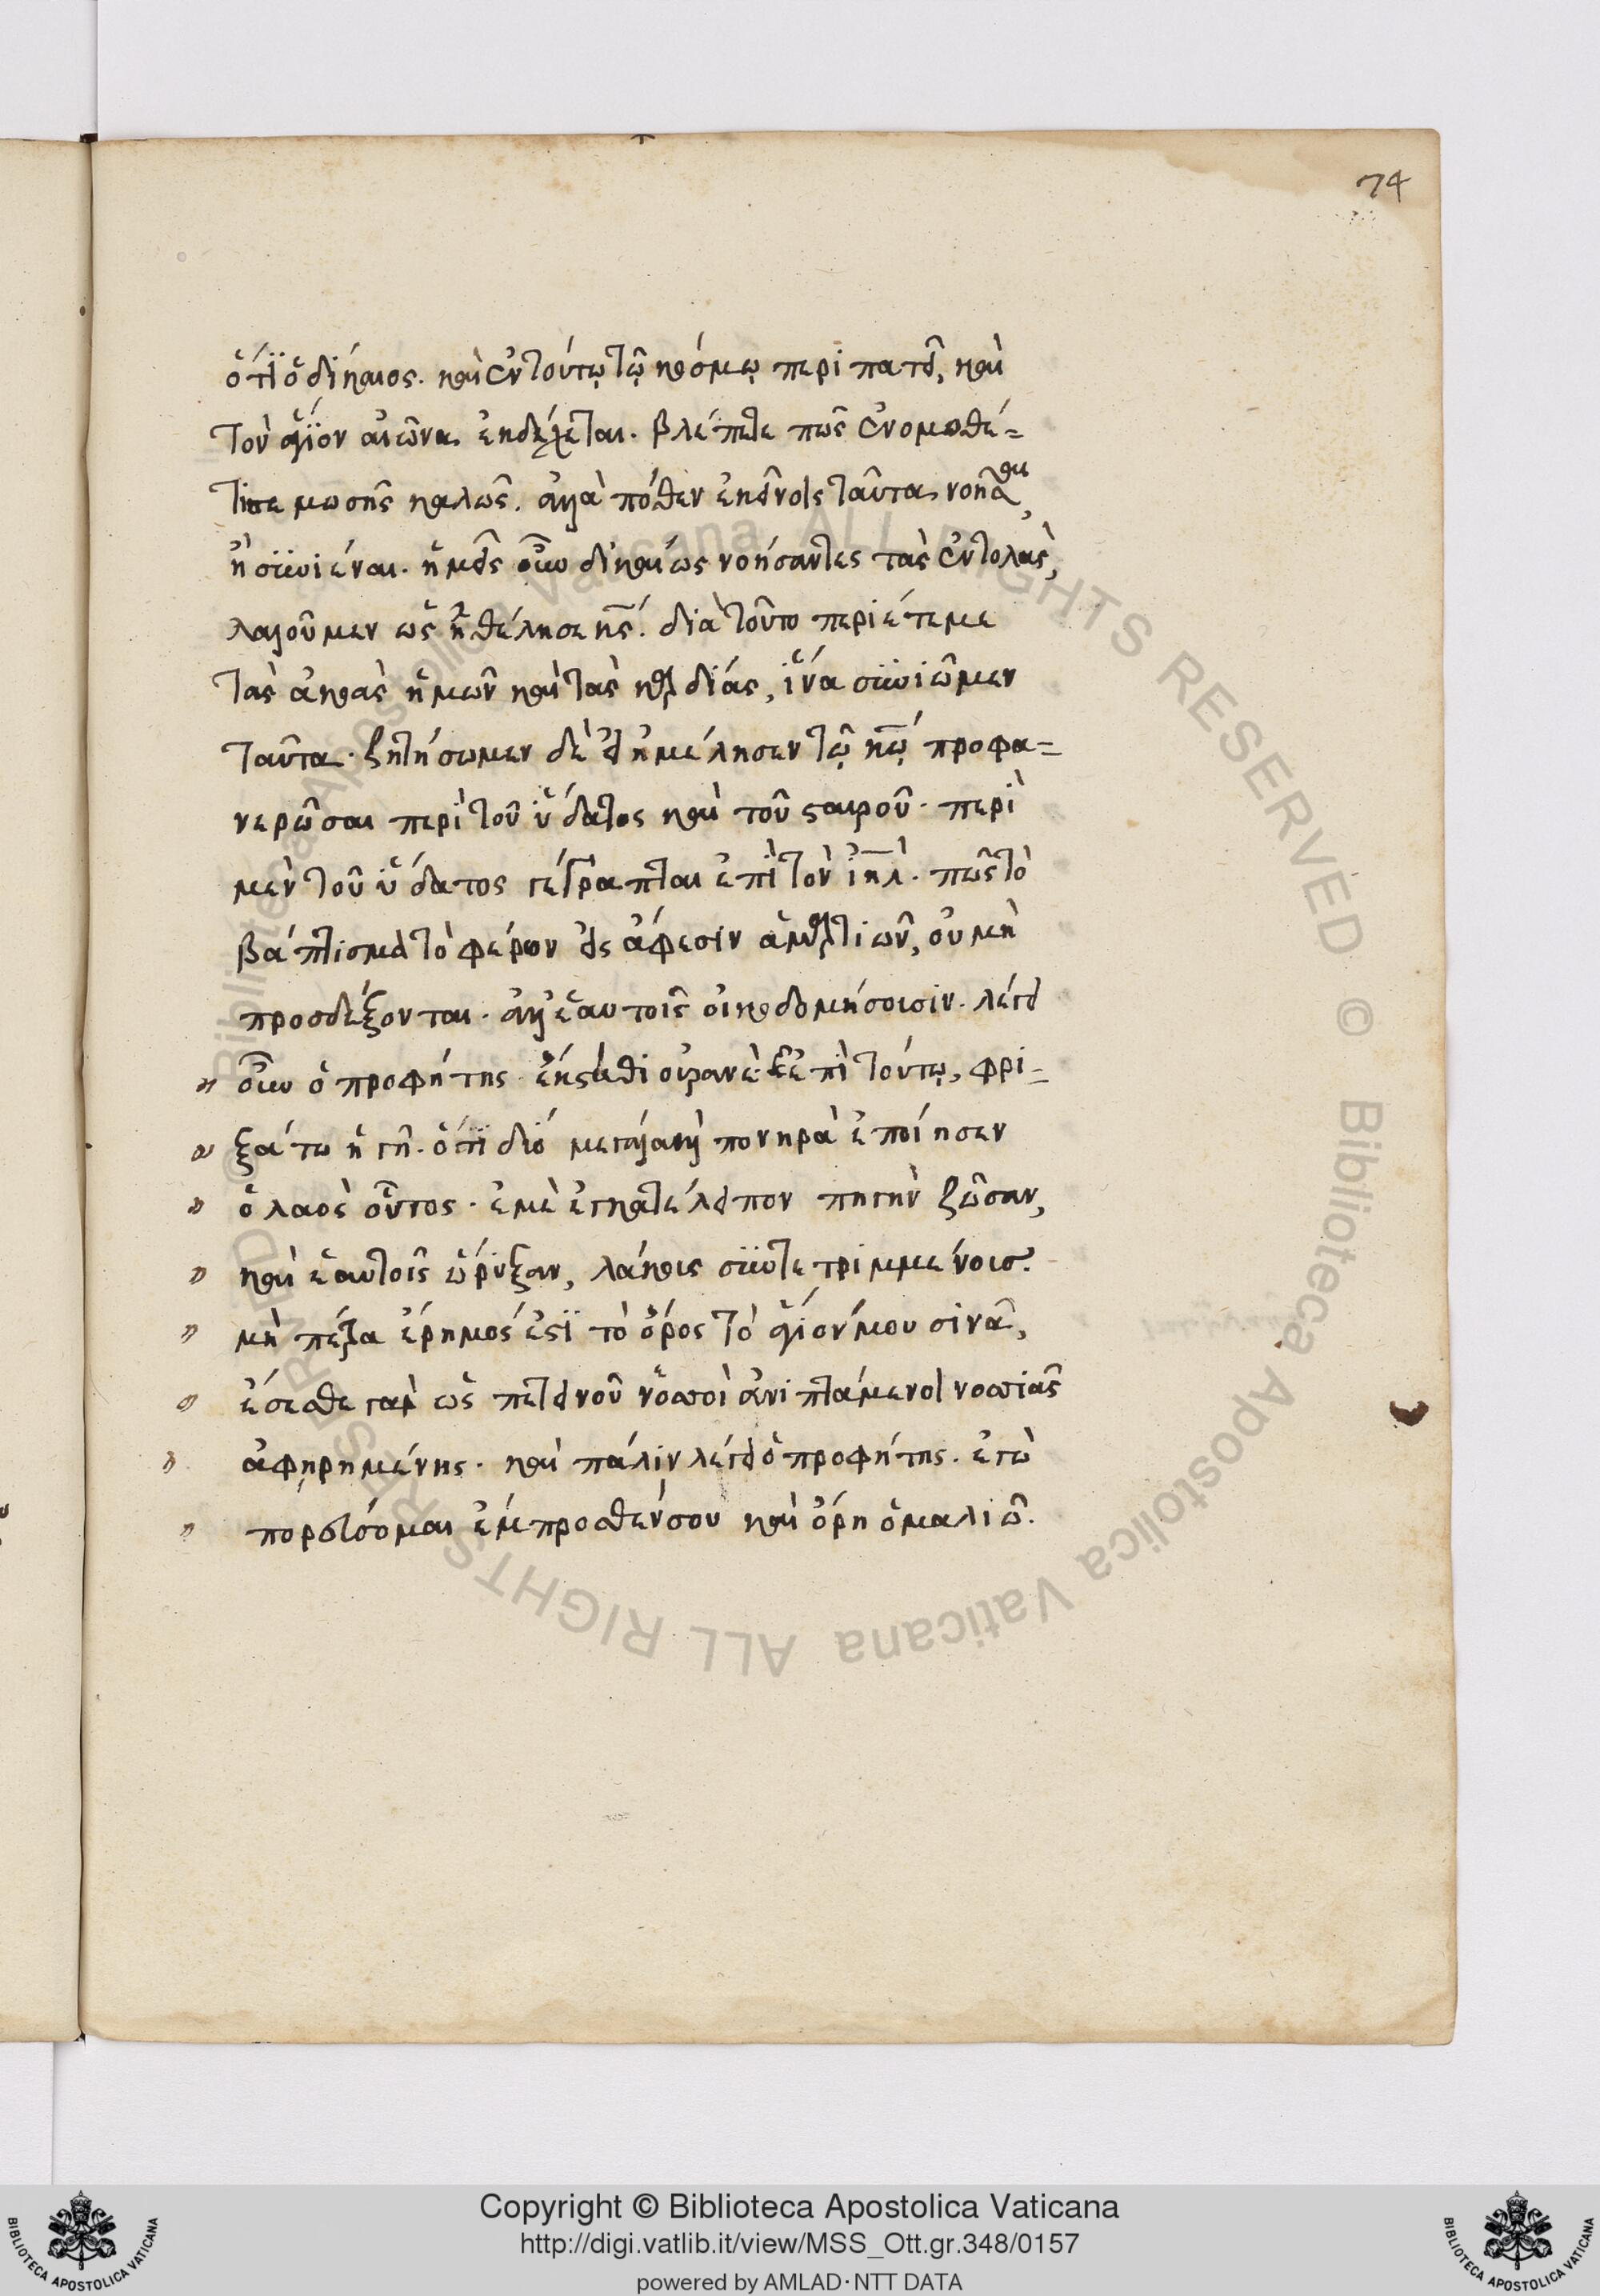 74
ὅτι ὁ δίκαιος. καὶ ἐν τούτῳ τῷ κόσμῳ περιπατεῖ, καὶ
τὸν ἅγιον αἰῶνα ἐκδέχεται. βλέπετε πῶς ἐνομοθέ=
τησε μωσῆς καλῶς. ἀλλὰ πόθεν ἐκείνοις ταῦτα νοῆσαι
ἢ συνιέναι. ἡμεῖς οὖν δικαίως νοήσαντες τὰς ἐντολὰς,
λαλοῦμεν ὡς ἠθέλησε κς. διὰ τοῦτο περιέτεμε
τὰς ἀκοὰς ἡμῶν καὶ τὰς καρδίας, ἵνα συνιῶμεν
ταῦτα. ζητήσωμεν δὲ εἰ ἐμέλησεν τῷ κω προφα=
νερῶσαι περὶ τοῦ ὕδατος καὶ τοῦ σταυροῦ. περὶ
μὲν τοῦ ὕδατος γέγραπται ἐπὶ τὸν ιηλ. πῶς τὸ
βάπτισμα τὸ φέρον εἰς ἄφεσιν ἁμαρτιῶν, οὐ μὴ
προσδέξονται. ἀλλ' ἑαυτοῖς οἰκοδομήσουσιν. λέγει
" οὖν ὁ προφήτης. ἔκστηθι οὐρανὲ ἐπὶ τούτῳ, φρι=
" ξάτω ἡ γῆ. ὅτι δύο μεγάλα καὶ πονηρὰ ἐποίησεν
" ὁ λαὸς οὗτος. ἐμὲ ἐγκατέλειπον πηγὴν ζῶσαν,
" καὶ ἑαυτοῖς ὤρυξαν, λάκκους συντετριμμένους.
" μὴ πέτρα ἔρημός ἐστι τὸ ὄρος τὸ ἅγιόν μου σινᾶ,
" ἔσεσθε γὰρ ὡς πετεινοῦ νοσσοὶ ἀνιπτάμενοι νοσσιᾶς
" ἀφῃρημένης. καὶ πάλιν λέγει ὁ προφήτης. ἐγὼ
" πορεύσομαι ἔμπροσθέν σου καὶ ὄρη ὁμαλιῶ.
Copyright © Biblioteca Apostolica Vaticana
http://digi.vatlib.it/view/MSS_Ott.gr.348/0157
powered by AMLAD·NTT DATA
BIBLIOTECA APOSTOLICA VATICANA
BIBLIOTECA APOSTOLICA VATICANA
© Biblioteca Apostolica Vaticana ALL RIGHTS RESERVED © Biblioteca Apostolica Vaticana ALL RIGHTS RESERVED